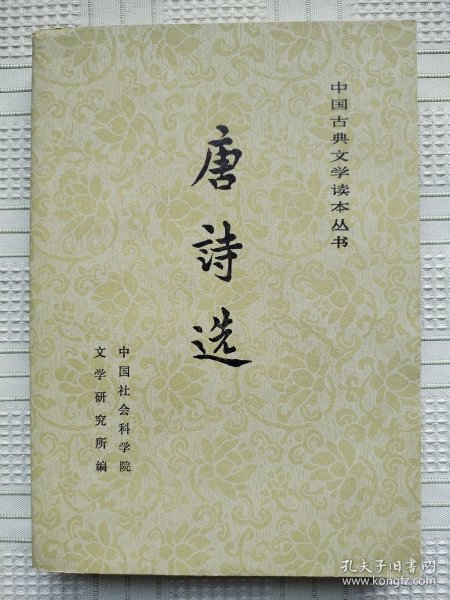 中国古典文学读本丛书
唐詩选
中国社会科学院
文学研究所编
孔夫子旧书网
www.kongfz.com